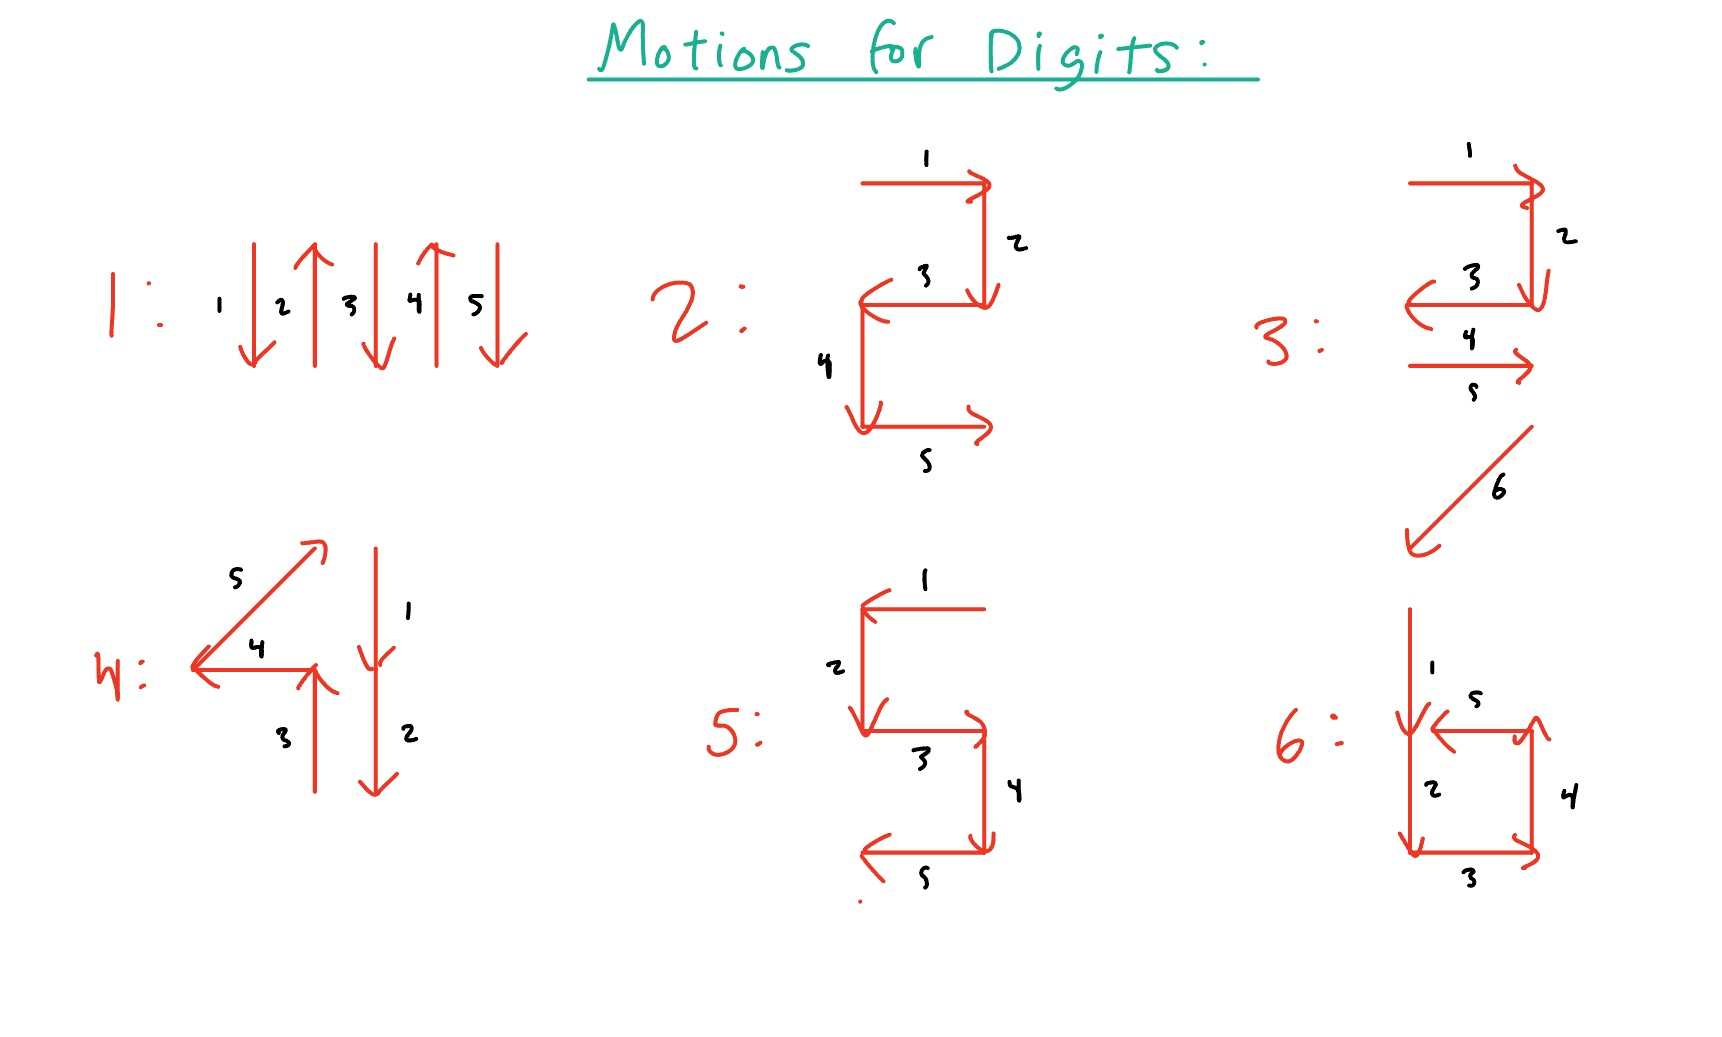 Motions for Digits:
1: 1 2 3 4 5
2: 1 2 3 4 5
3: 1 2 3 4 5 6
4: 1 2 3 4 5
5: 1 2 3 4 5
6: 1 2 3 4 5